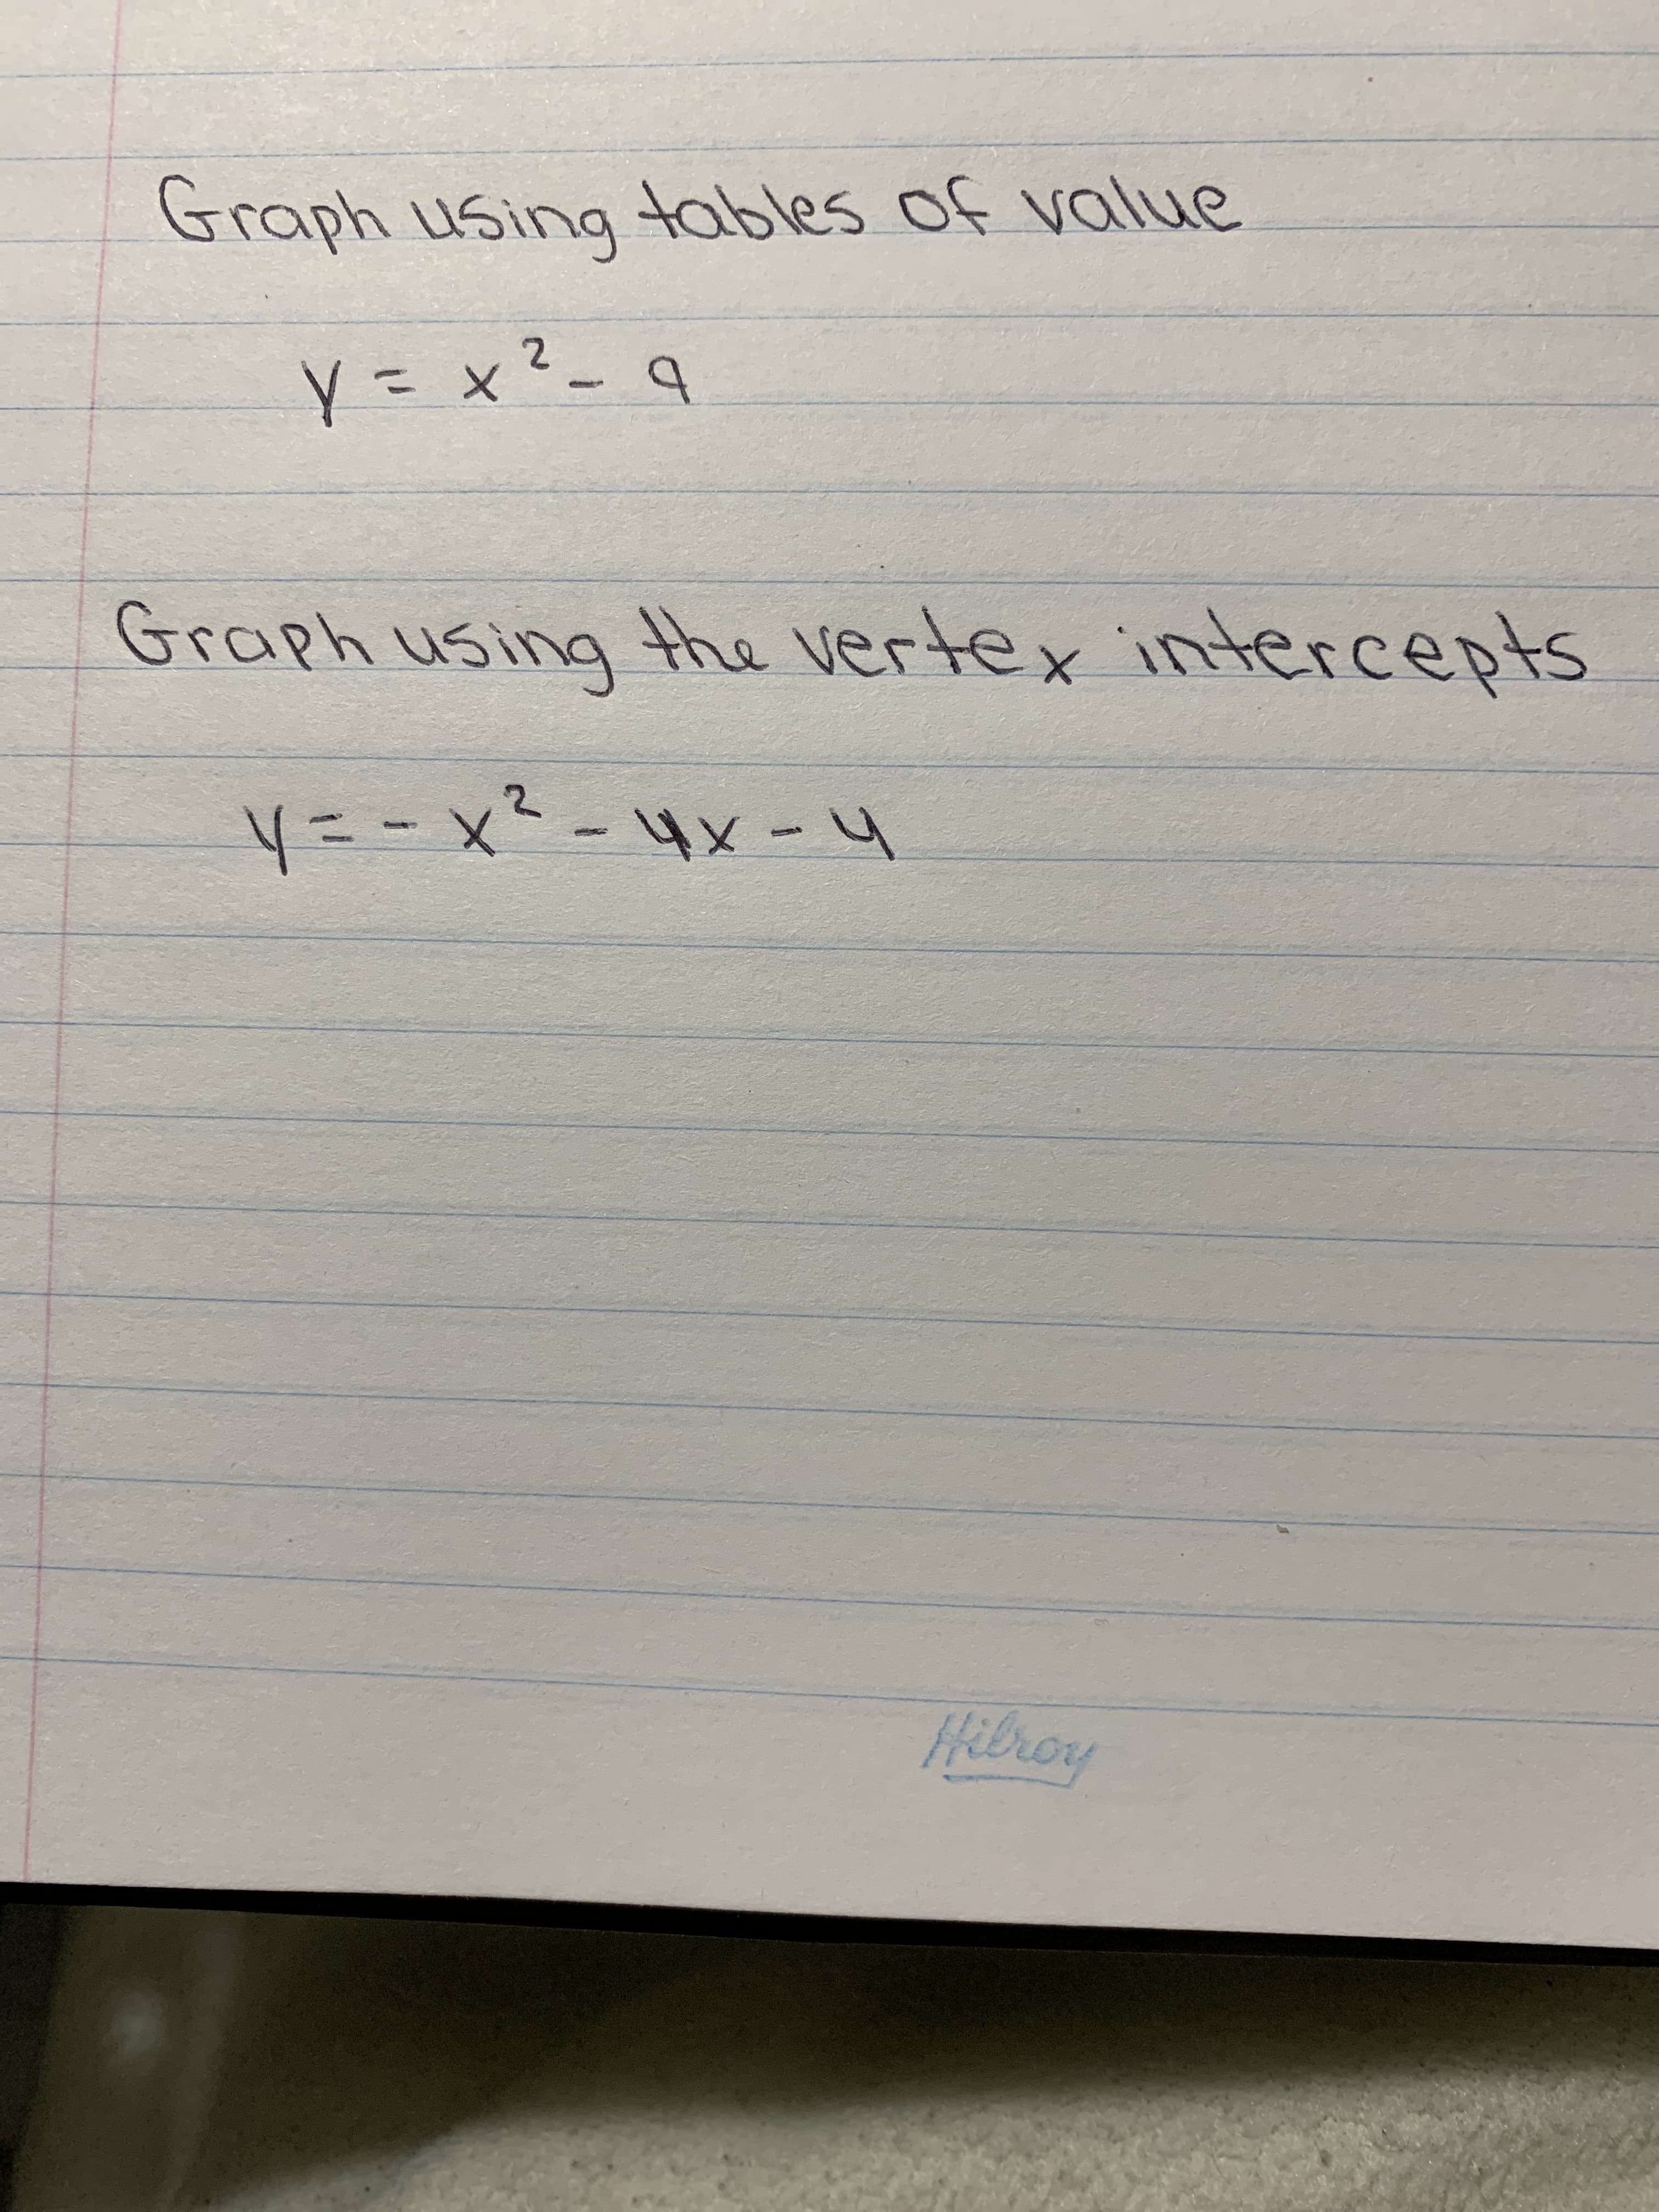 Graph using tables of value
y = x² - 9
Graph using the vertex intercepts
y = - x² - 4x - 4
Hilroy